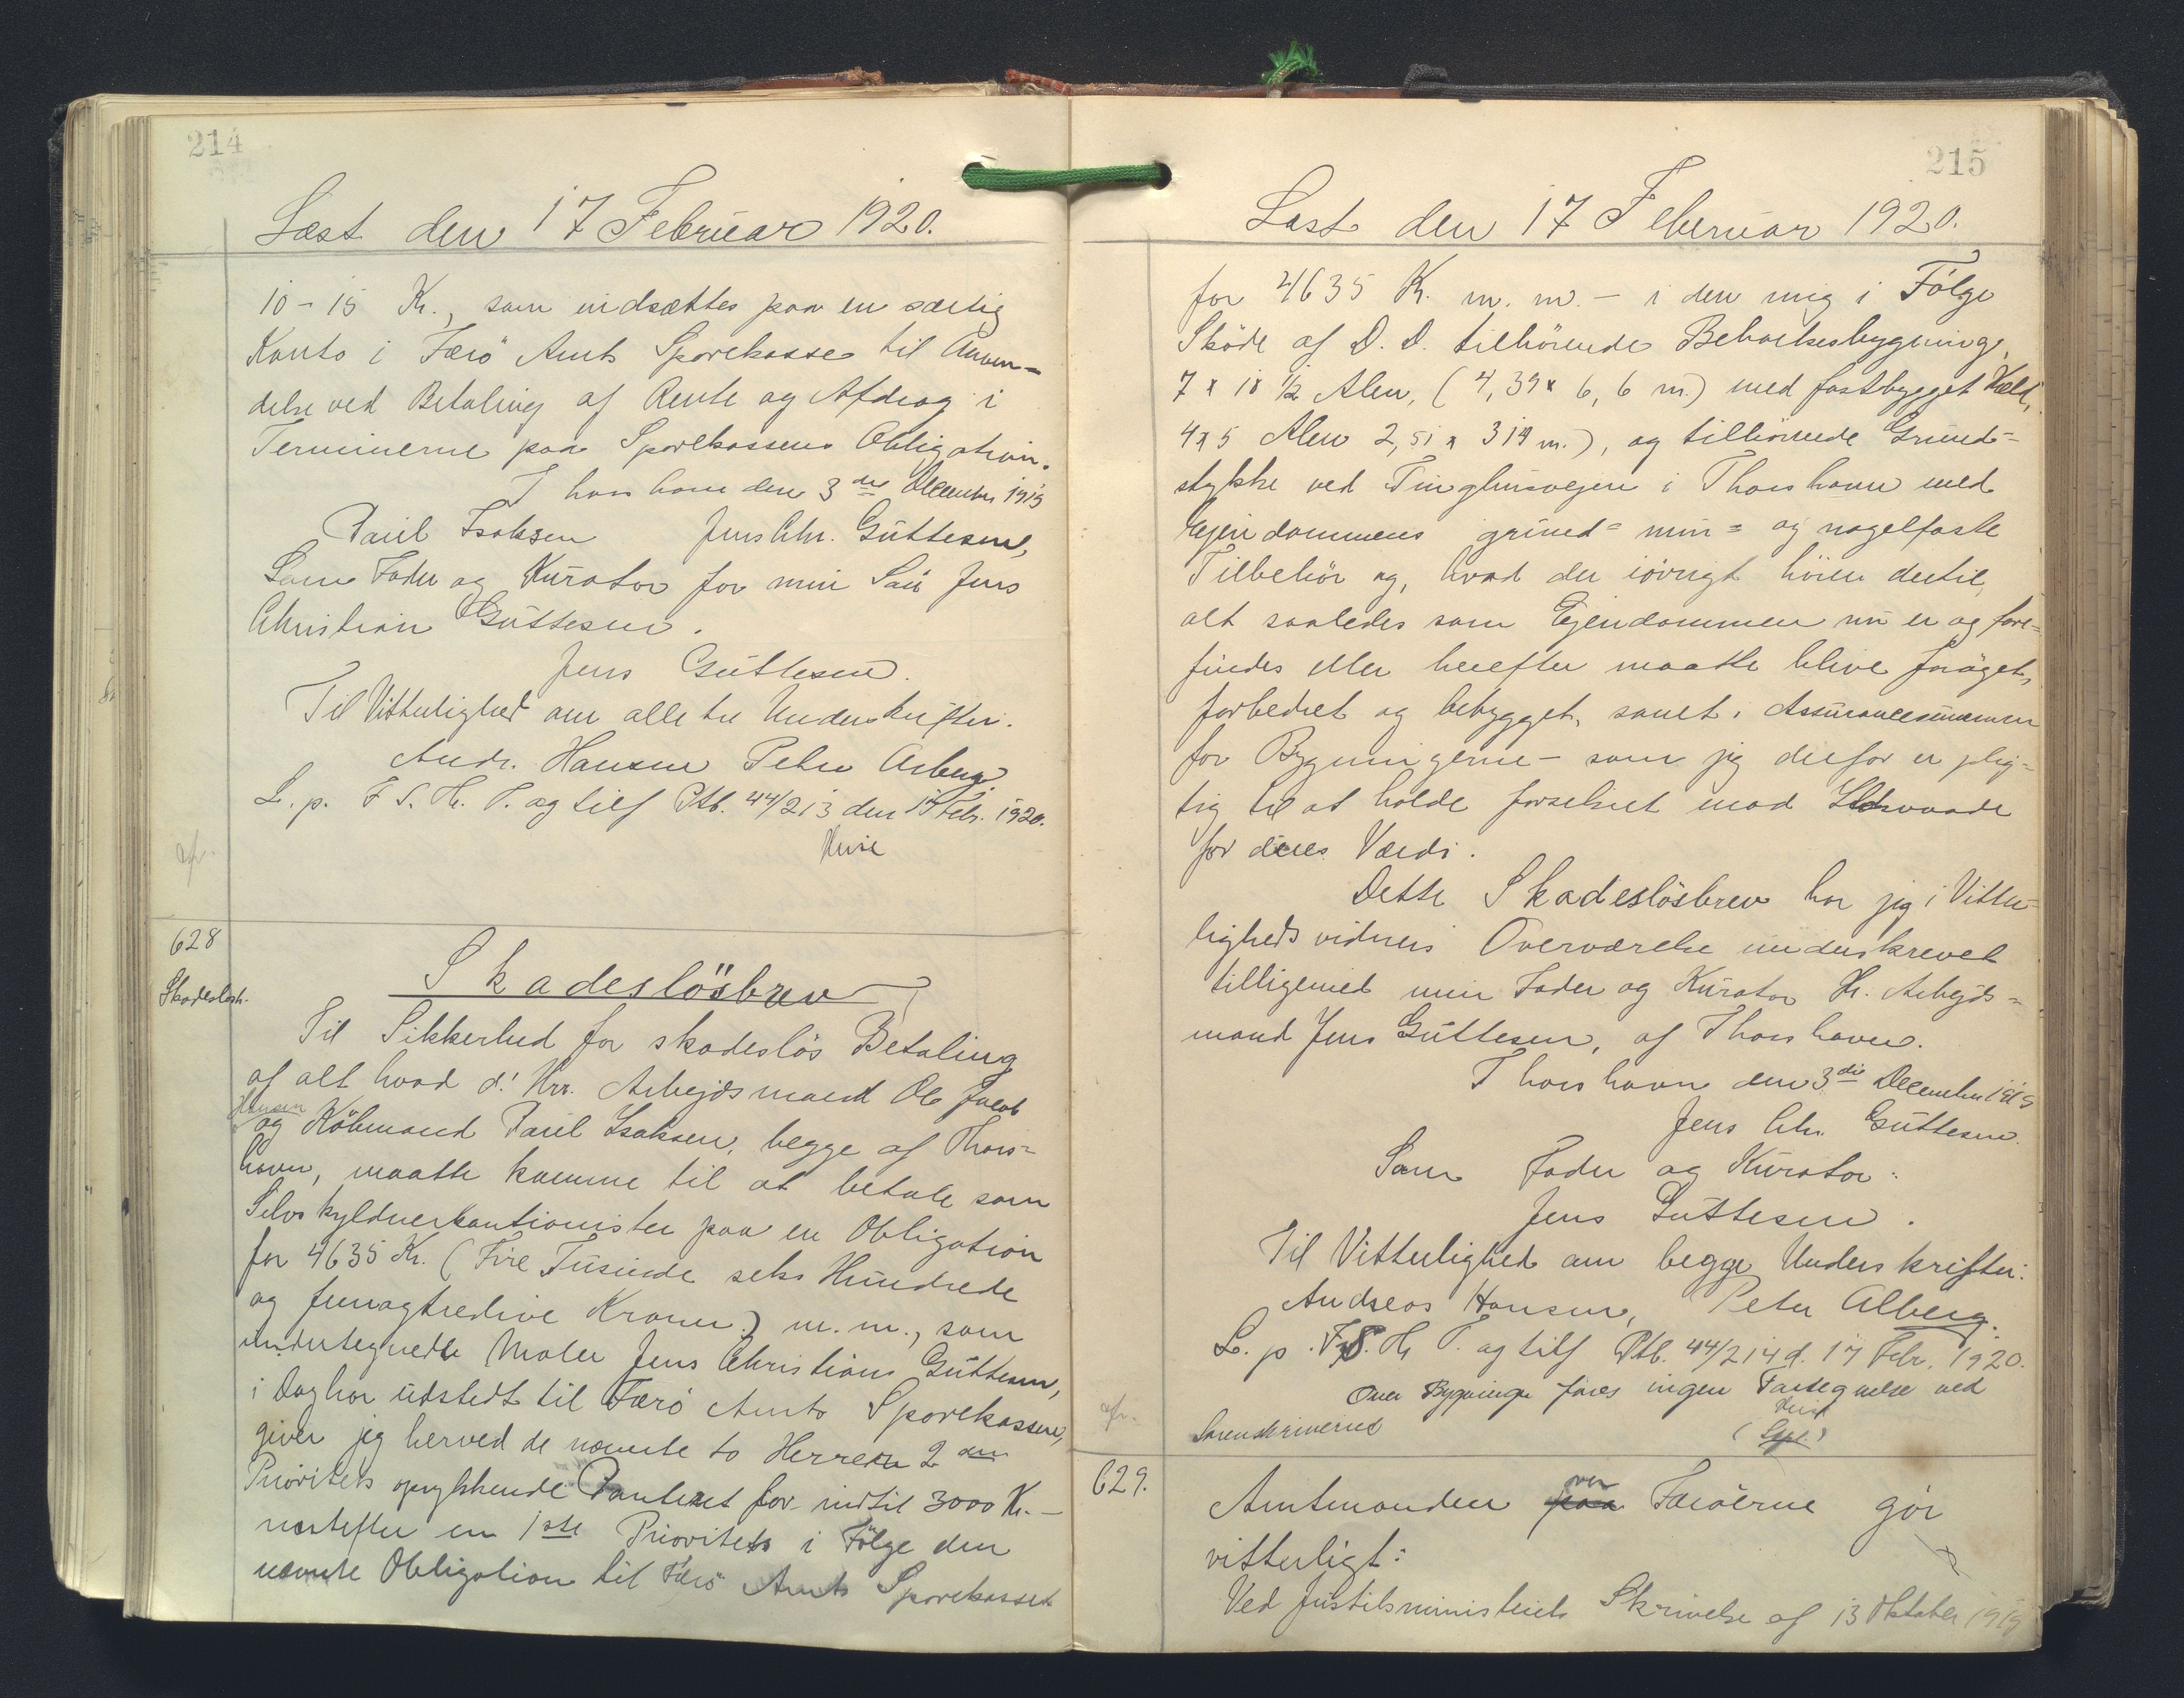 214
Læst den 17 Februar 1920.
10-15 Kr., som indsættes paa en særlig
Konto i Færö Amts Sparekasse til Anven-
delse ved Betaling af Rente og Afdrag i
Terminerne paa Sparekassens Obligation.
Thorshavn den 3 die December 1919
Paul Isaksen Jens Chr. Guttesen,
Som Fader og Kurator for min Sön Jens
Christian Guttesen.
Jens Guttesen.
Til Vitterlighed om alle tre Underskrifter.
Andr. Hansen Peter Alberg
L. p. F. S. H. T. og tilf Ptb. 44/213 den 17 Febr. 1920.
afr.
628
Skadeslösb.
Skadeslösbrev
Til Sikkerhed for skadeslös Betaling
af alt hvad d'Hrr. Arbejdsmand Ole Jacob
Hansen
og Köbmand Paul Isaksen, begge af Thors-
havn, maatte komme til at betale som
Selvskyldnerkautionister paa en Obligation
for 4635 Kr. (Fire Tusinde seks Hundrede
og femogtredive Kroner) m.m., som
undertegnede Maler Jens Christian Guttesen,
i Dag har udstedt til Færö Amts Sparekasse,
giver jeg herved de nævnte to Herrer 2 den
Prioritets oprykkende Panteret for indtil 3000 Kr. -
næstefter en 1ste Prioritets i Fölge den
nævnte Obligation til Færö Amts Sparekasse
215
Læst den 17 Februar 1920.
for 4635 Kr. m. m. - i den mig i Fölge
Sköde af D. D. tilhörende Beboelsesbygning,
7 x 10 1/2 Alen, (4,39 x 6,6 m.) med fastbygget
4x5 Alen 2,51 x 314 m.), og tilhörende Grund-
stykke ved Tinghusvejen i Thorshavn med
Ejendommens grund- mur- og nagelfaste
Tilbehör og, hvad der iövrigt hörer dertil,
alt saaledes som Ejendommen nu er og fore-
findes eller herefter maatte blive foröget,
forbedret og bebygget, samt i Assurancesummen
for Bygningerne - som jeg derfor er plig-
tig til at holde forsikret mod Ildsvaade
for deres Værdi.
Dette Skadeslösbrev har jeg i Vitter-
lighedsvidners Overværelse underskrevet
tilligemed min Fader og Kurator Hr. Arbejds-
mand Jens Guttesen, af Thorshavn.
Thorshavn den 3die December 1919
Jens Chr. Guttesen.
Som Fader og Kurator:
Jens Guttesen.
Til Vitterlighed om begge Underskrifter:
Andreas Hansen, Peter Alberg.
L. p. F. S. H. T. og tilf Ptb. 44/214 d. 17 Febr. 1920.
Over Bygninger föres ingen Fortegnelse ved
Sorenskriveriet
afr.
629.
Amtmanden paa over Færöerne gör
vitterligt:
Ved Justitsministeriets Skrivelse af 13 Oktober 1919